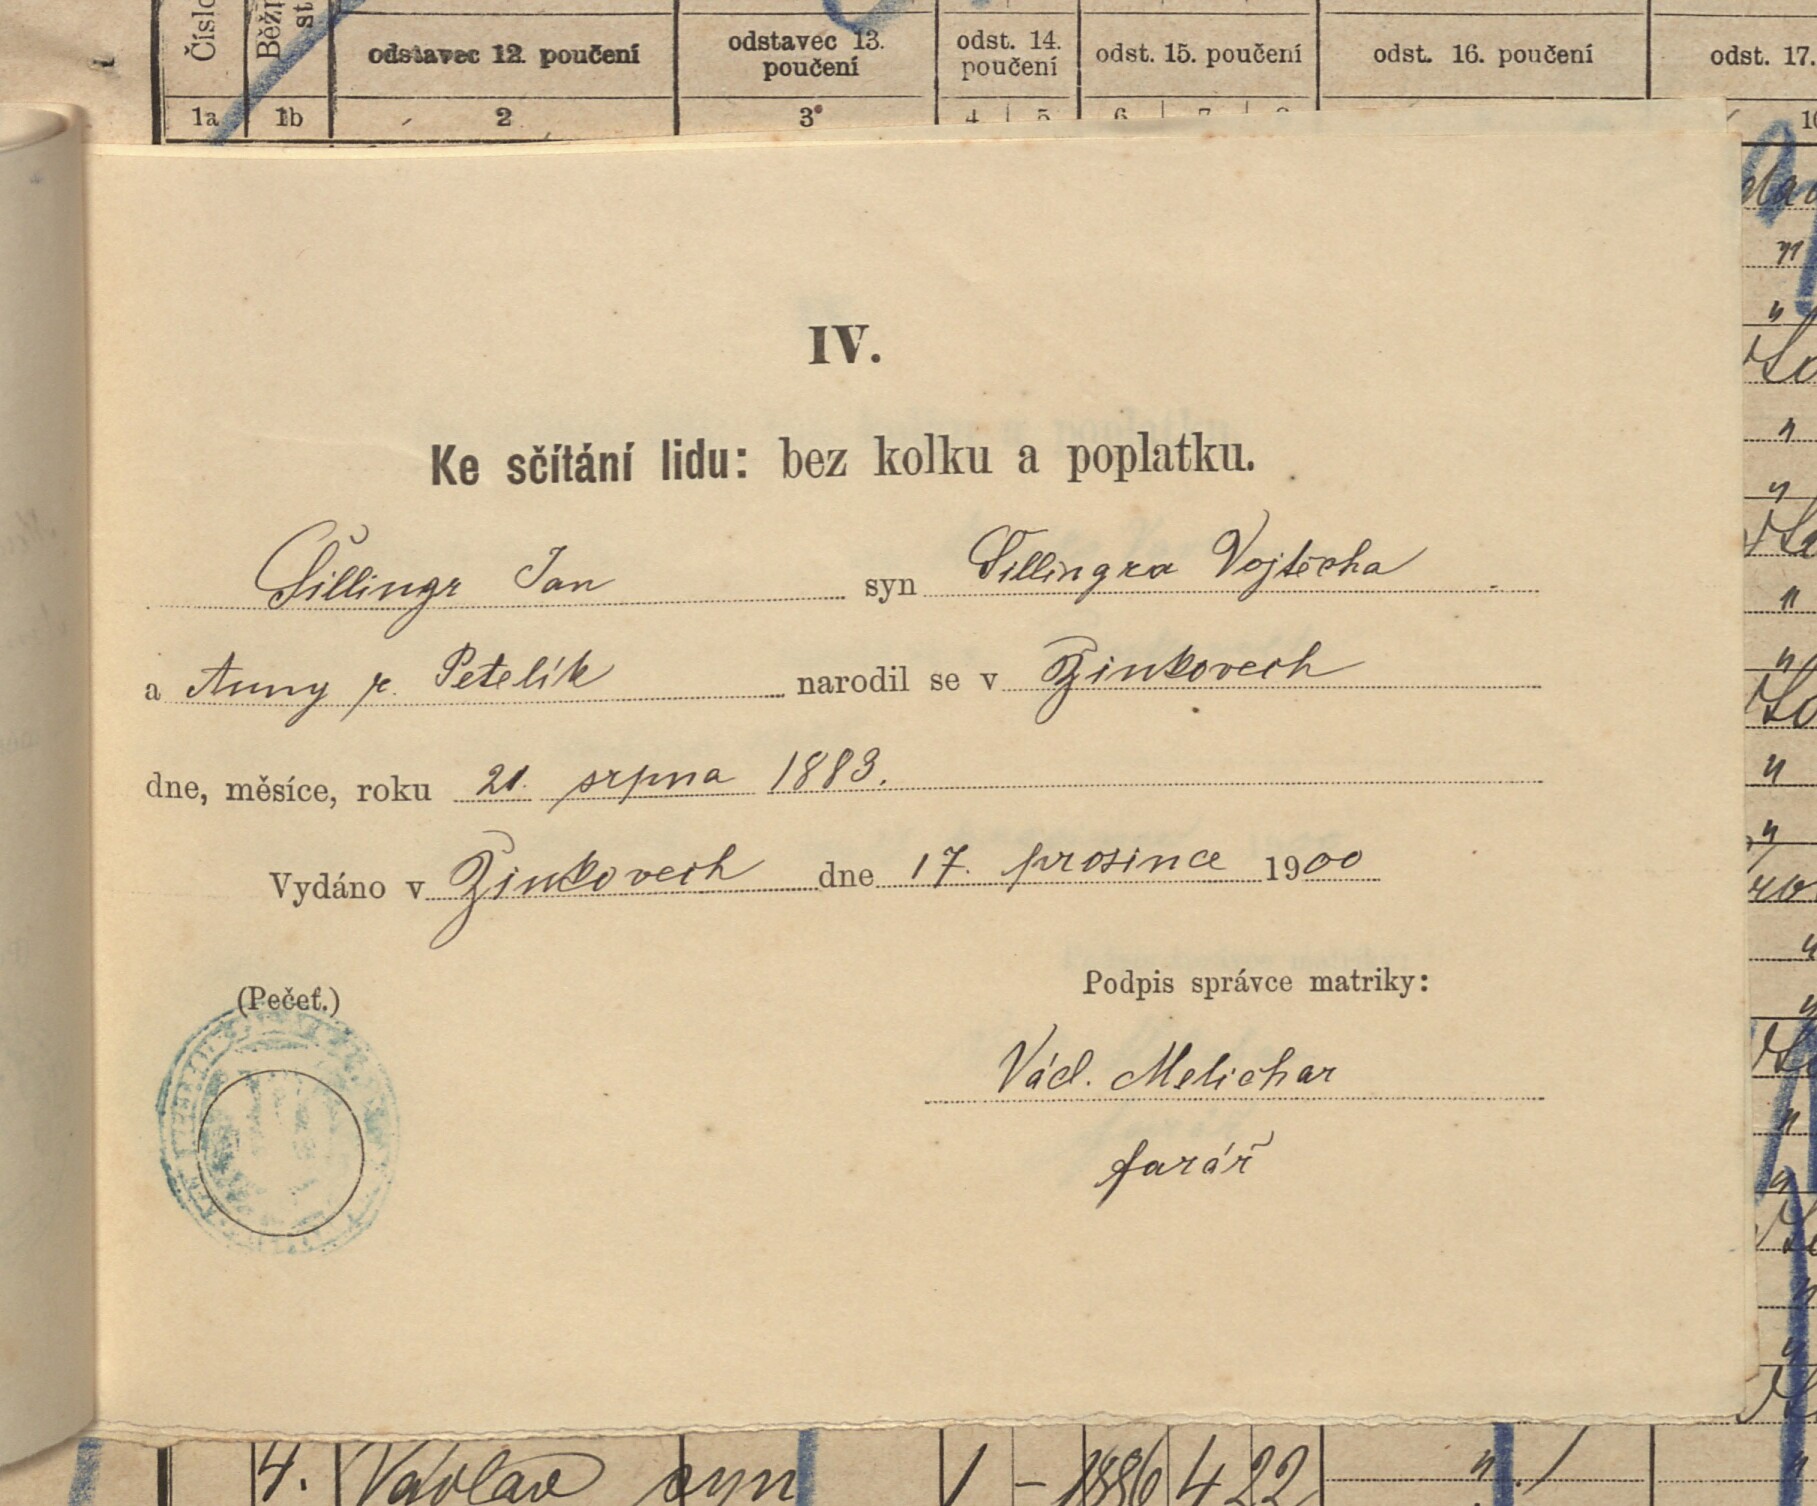 Číslo
Běž
odstavec 12. poučení
odstavec 13. poučení
odst. 14. poučení
odst. 15. poučení
odst. 16. poučení
odst. 17.
1a 1b 2 3 4 5 6 7 8 10
IV.
Ke sčítání lidu: bez kolku a poplatku.
Šillingr Jan syn Šillingra Vojtěcha
a Anny r. Petelík narodil se v Žinkovech
dne, měsíce, roku 21. srpna 1883.
Vydáno v Žinkovech dne 17. prosince 1900
(Pečeť.)
Podpis správce matriky:
Václ. Melichar
farář
4. Václav syn 1 – 1886 4 22 "